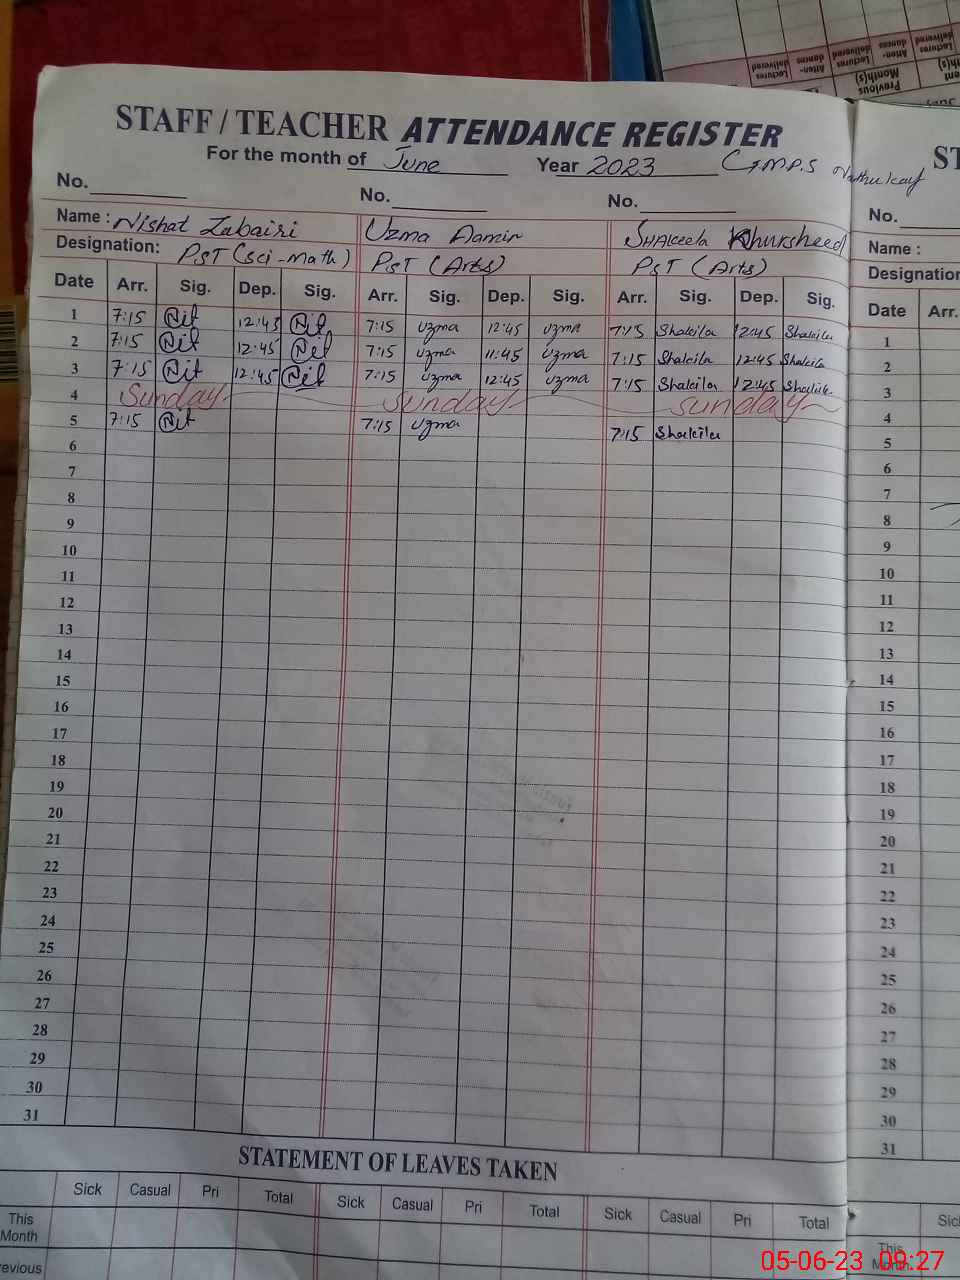 STAFF / TEACHER ATTENDANCE REGISTER
For the month of June Year 2023 G.M.P.S
No. No. No. No.
Name : Nishat Zabairi Uzma Aamir Shakeela Khursheed Name :
Designation: PST (Sci-Math) PST (Arts) PST (Arts) Designation
Date Arr. Sig. Dep. Sig. Arr. Sig. Dep. Sig. Arr. Sig. Dep. Sig. Date Arr.
1 7:15 12:45 7:15 Uzma 12:45 Uzma 7:15 Shakila 12:45 Shakila 1
2 7:15 12:45 7:15 Uzma 11:45 Uzma 7:15 Shakila 12:45 Shakila 2
3 7:15 12:45 7:15 Uzma 12:45 Uzma 7:15 Shakila 12:45 Shakila 3
4 Sunday Sunday Sunday 4
5 7:15 7:15 Uzma 7:15 Shakila 5
6 6
7 7
8 8
9 9
10 10
11 11
12 12
13 13
14 14
15 15
16 16
17 17
18 18
19 19
20 20
21 21
22 22
23 23
24 24
25 25
26 26
27 27
28 28
29 29
30 30
31 31
STATEMENT OF LEAVES TAKEN
Sick Casual Pri Total Sick Casual Pri Total Sick Casual Pri Total
This Month This Month
05-06-23 09:27
Lectures delivered Atten- dances Lectures delivered Atten- dances Lectures delivered
Previous Month(s)